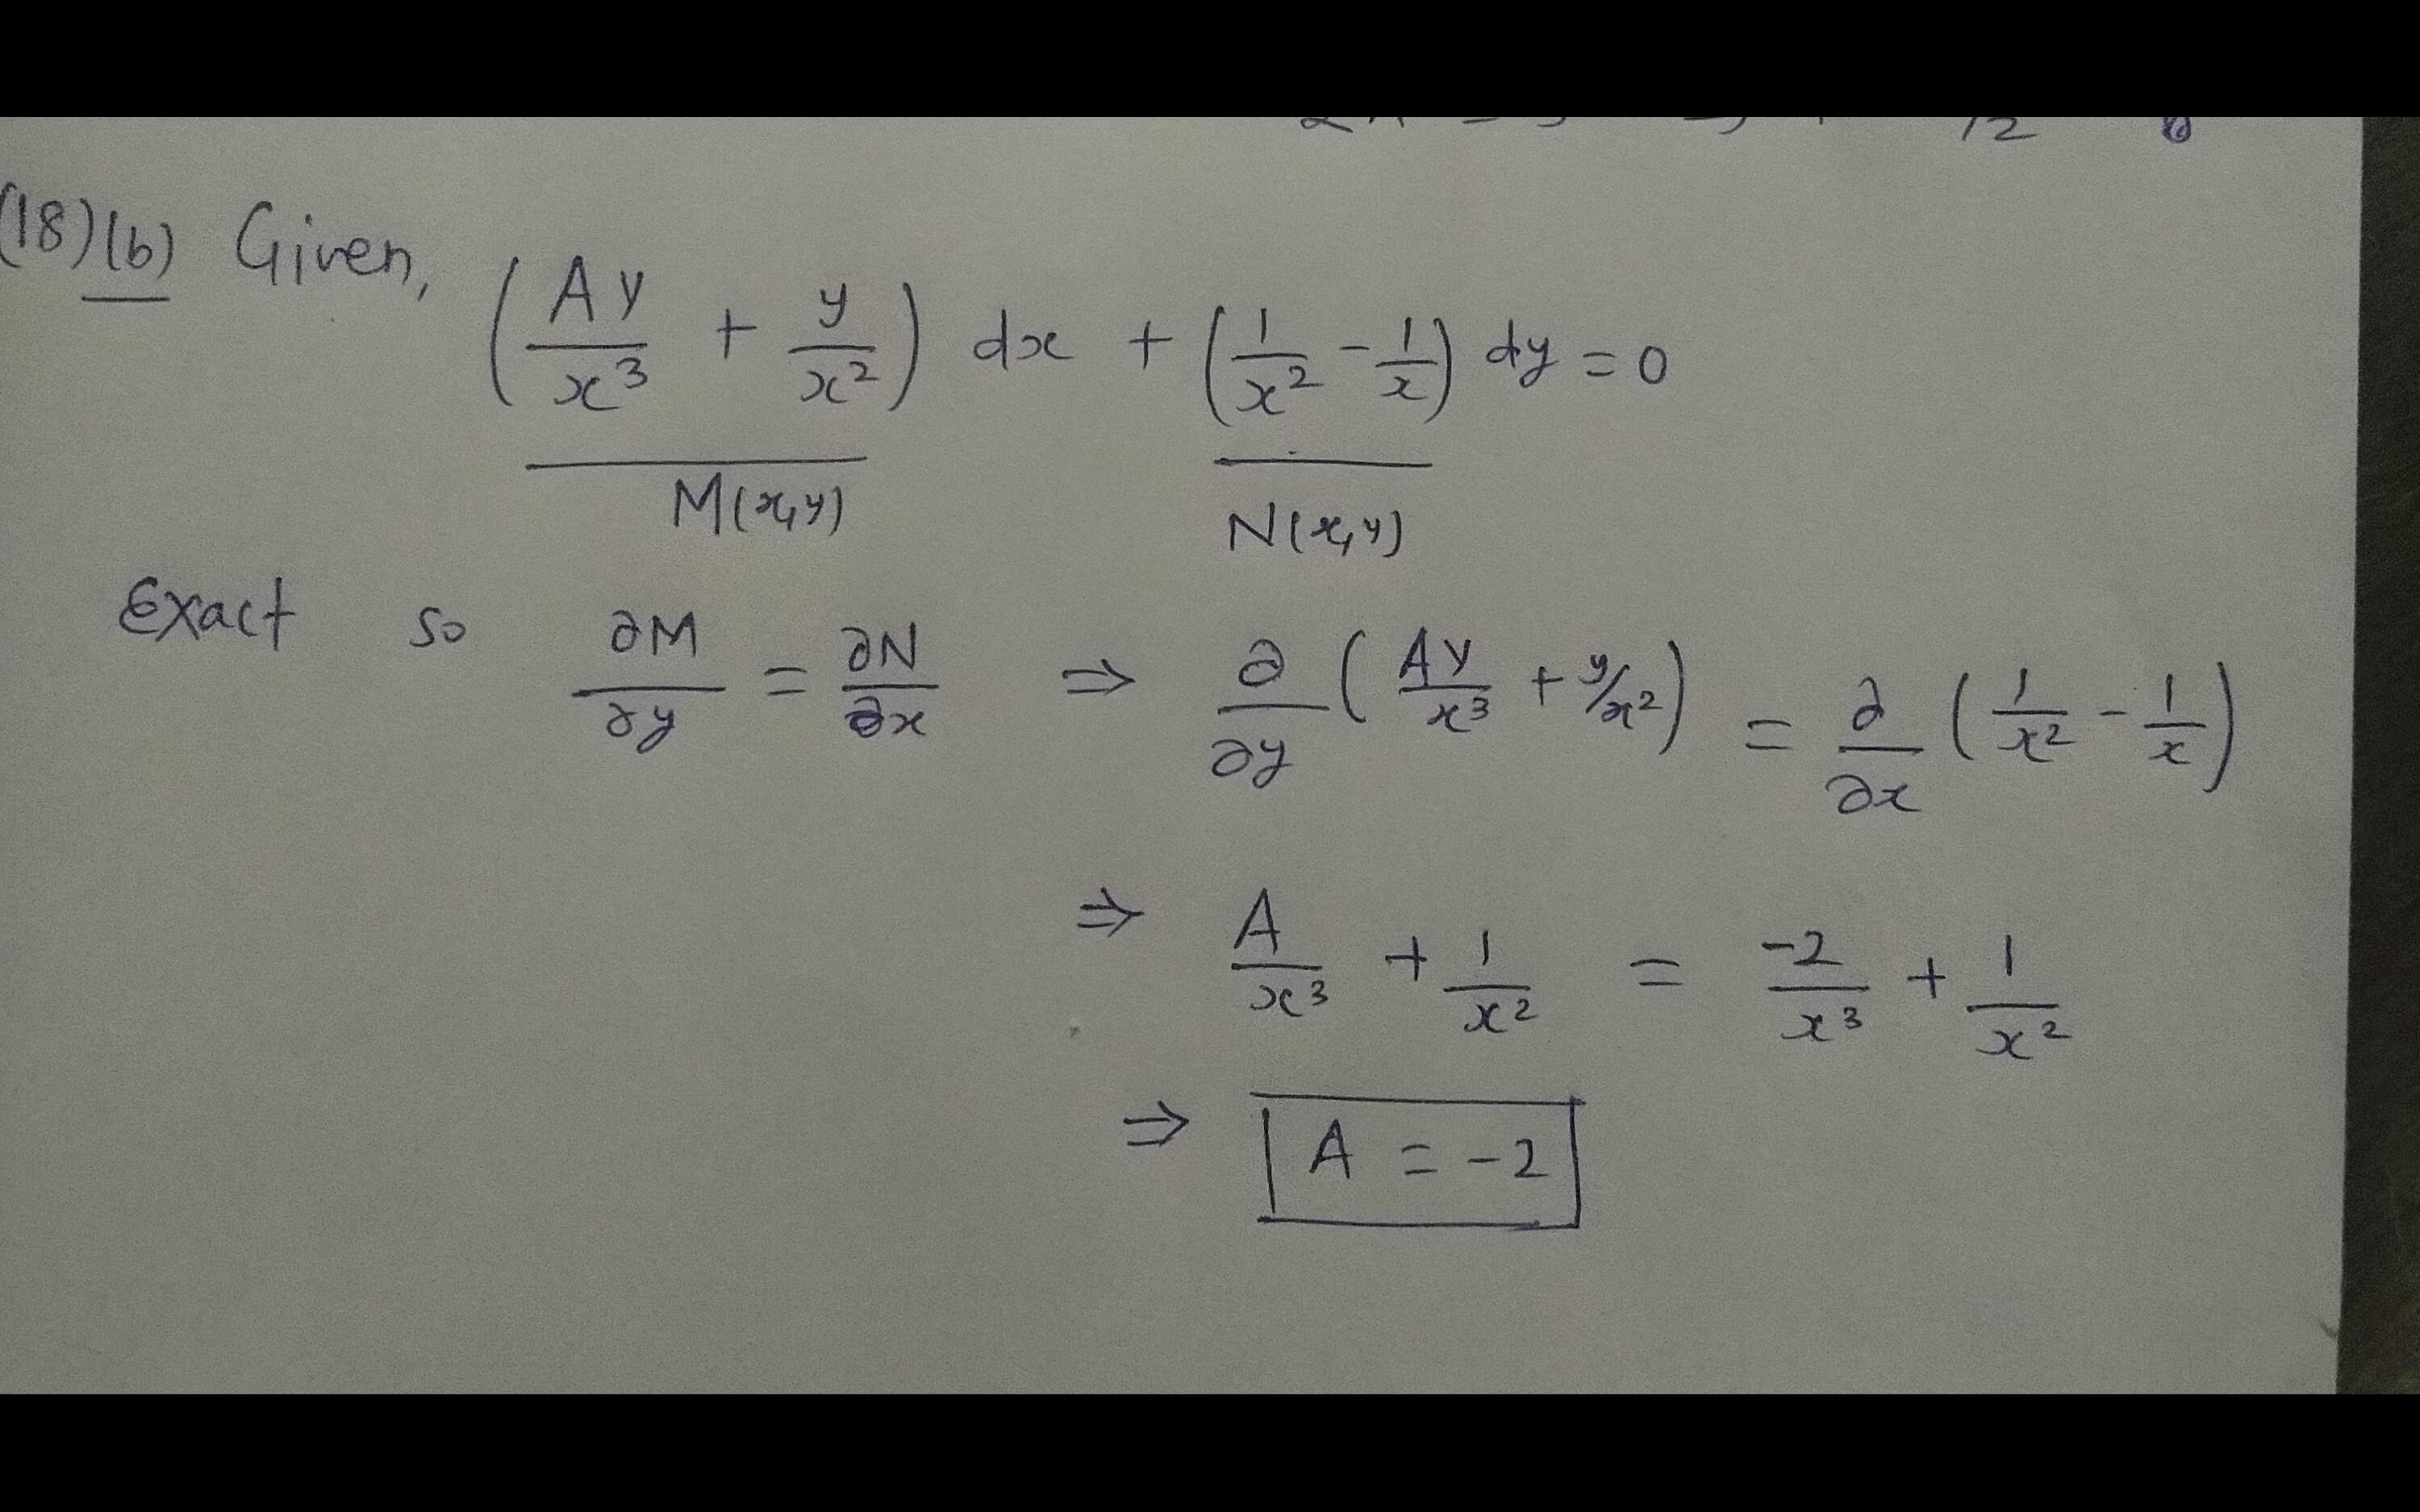 (18)(b) Given, (Ay/x³ + y/x²) dx + (1/x² - 1/x) dy = 0
M(x,y) N(x,y)
Exact so ∂M/∂y = ∂N/∂x ⇒ ∂/∂y (Ay/x³ + y/x²) = ∂/∂x (1/x² - 1/x)
⇒ A/x³ + 1/x² = -2/x³ + 1/x²
⇒ A = -2